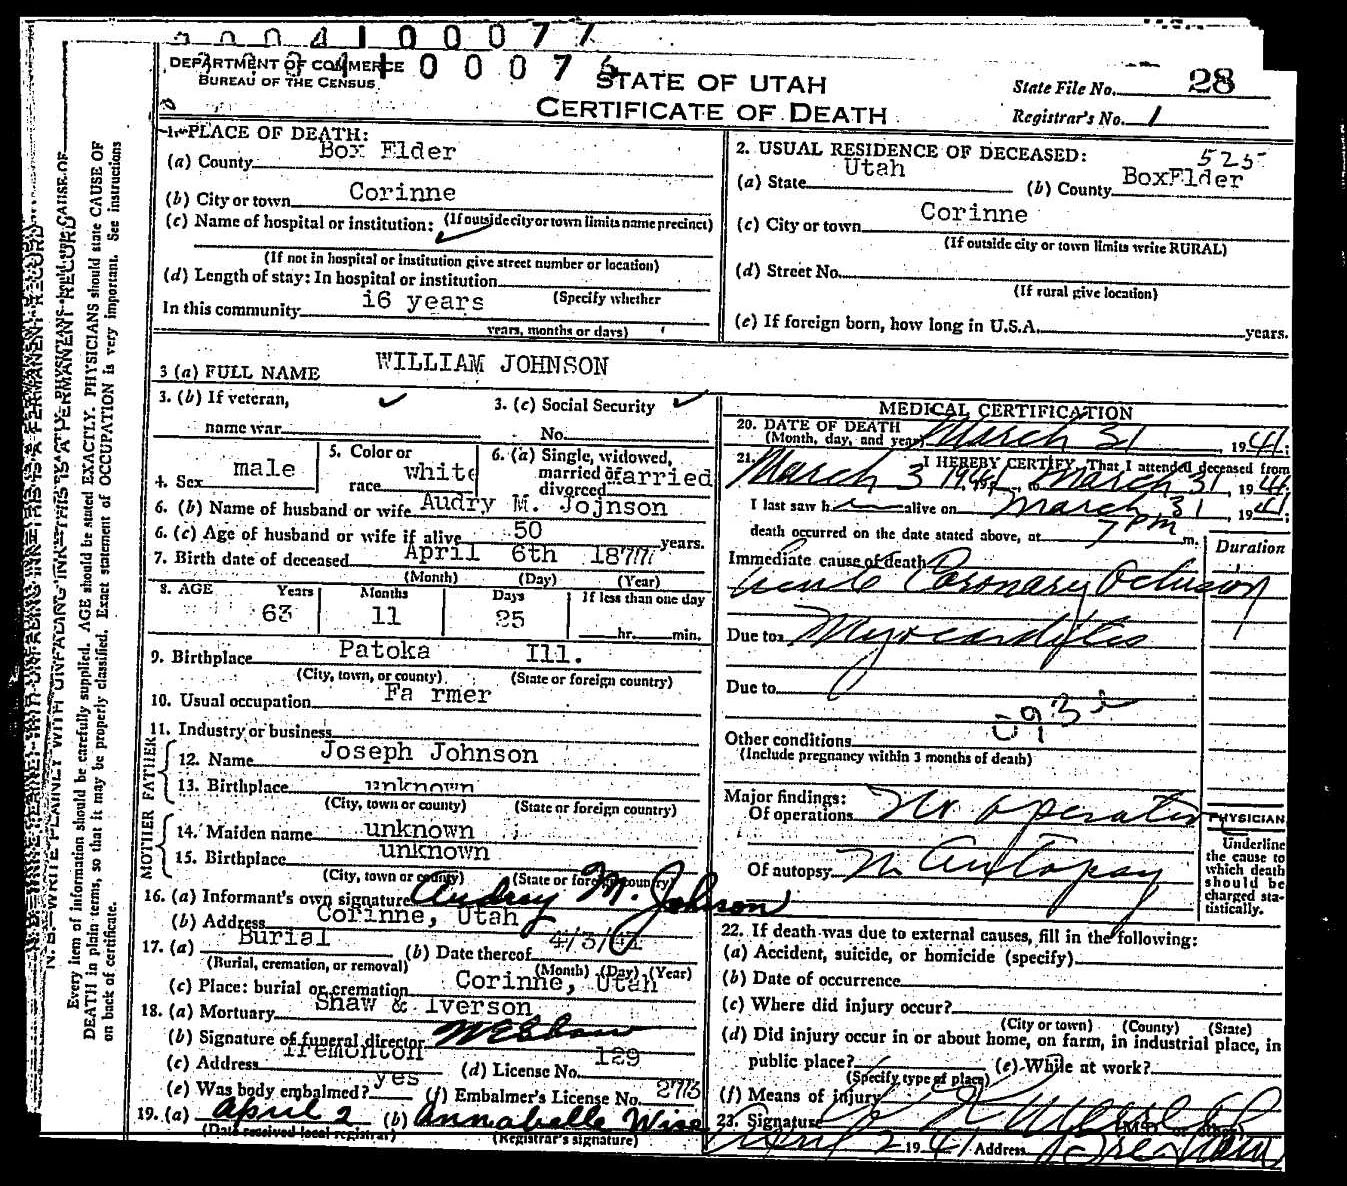 00041 00077
DEPARTMENT OF COMMERCE
BUREAU OF THE CENSUS
STATE OF UTAH
CERTIFICATE OF DEATH
State File No. 28
Registrar's No. 1
1. PLACE OF DEATH:
(a) County Box Elder
(b) City or town Corinne
(c) Name of hospital or institution: (If outside city or town limits name precinct)
(If not in hospital or institution give street number or location)
(d) Length of stay: In hospital or institution
(Specify whether
In this community 16 years
years, months or days)
2. USUAL RESIDENCE OF DECEASED: 525
(a) State Utah (b) County BoxElder
(c) City or town Corinne
(If outside city or town limits write RURAL)
(d) Street No.
(If rural give location)
(e) If foreign born, how long in U.S.A. years.
3 (a) FULL NAME WILLIAM JOHNSON
3. (b) If veteran,
name war
3. (c) Social Security
No.
4. Sex male
5. Color or
race white
6. (a) Single, widowed,
married or married
divorced
6. (b) Name of husband or wife Audry M. Jojnson
6. (c) Age of husband or wife if alive 50 years.
7. Birth date of deceased April 6th 1877
(Month) (Day) (Year)
8. AGE Years Months Days If less than one day
63 11 25 hr. min.
9. Birthplace Patoka Ill.
(City, town, or county) (State or foreign country)
10. Usual occupation Fa rmer
11. Industry or business
FATHER
12. Name Joseph Johnson
13. Birthplace unknown
(City, town or county) (State or foreign country)
MOTHER
14. Maiden name unknown
15. Birthplace unknown
(City, town or county) (State or foreign country)
16. (a) Informant's own signature Audrey M. Johnson
(b) Address Corinne, Utah
17. (a) Burial (b) Date thereof 4/3/41
(Burial, cremation, or removal) (Month) (Day) (Year)
(c) Place: burial or cremation Corinne, Utah
18. (a) Mortuary Shaw & Iverson
(b) Signature of funeral director
(c) Address Tremonton (d) License No. 129
(e) Was body embalmed? yes (f) Embalmer's License No. 273
19. (a) April 2 (b) Annabelle Wise
(Date received local registrar) (Registrar's signature)
MEDICAL CERTIFICATION
20. DATE OF DEATH
(Month, day, and year) March 31, 1941;
21. I HEREBY CERTIFY, That I attended deceased from
March 3 1941, to March 31, 1941;
I last saw h alive on March 31, 1941;
death occurred on the date stated above, at 7 pm m.
Duration
Immediate cause of death
Acute Coronary Oclusion
Due to Myocarditis
Due to
Other conditions
(Include pregnancy within 3 months of death)
Major findings:
Of operations No operation
Of autopsy No Autopsy
PHYSICIAN
Underline
the cause to
which death
should be
charged sta-
tistically.
22. If death was due to external causes, fill in the following:
(a) Accident, suicide, or homicide (specify)
(b) Date of occurrence
(c) Where did injury occur?
(City or town) (County) (State)
(d) Did injury occur in or about home, on farm, in industrial place, in
public place? (e) While at work?
(Specify type of place)
(f) Means of injury
23. Signature
April 2 1941 Address
N. B.—WRITE PLAINLY WITH UNFADING INK—THIS IS A PERMANENT RECORD
Every item of information should be carefully supplied. AGE should be stated EXACTLY. PHYSICIANS should state CAUSE OF
DEATH in plain terms, so that it may be properly classified. Exact statement of OCCUPATION is very important. See instructions
on back of certificate.